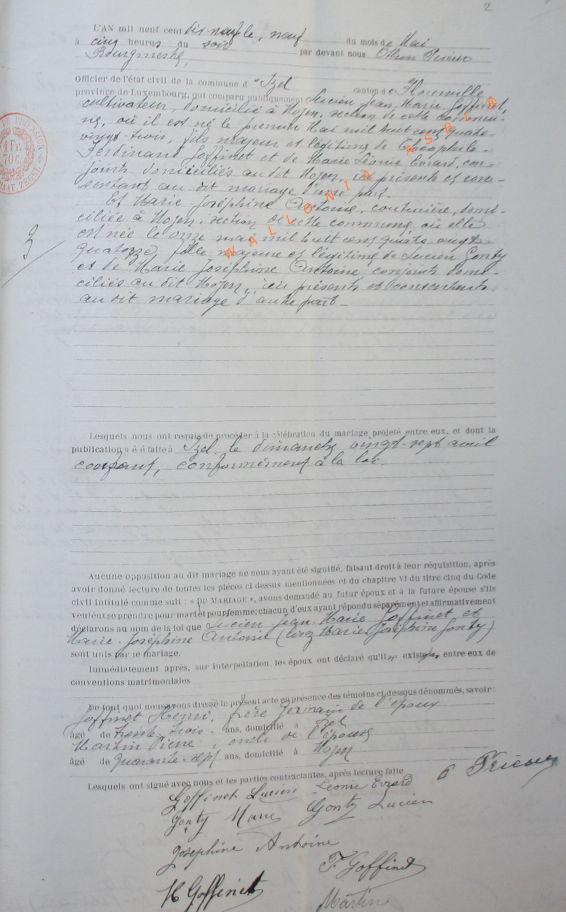 2
L'AN mil neuf cent dix-neuf le, neuf du mois de Mai
à cinq heures du soir par devant nous
Bourgmestre,
Officier de l'état civil de la commune d' Izel canton de Florenville
province de Luxembourg, ont comparu publiquement Lucien Jean, Marie Goffinet,
cultivateur, domicilié à Moyen, section de cette commu-
ne, où il est né le premier Mai mil huit cent quatre-
vingt-trois, fils majeur et légitime de Théophile-
Ferdinand Goffinet et de Marie Léonie Evrard, con-
joints domiciliés au dit Moyen, ici présents et con-
sentants au dit mariage d'une part.
Et Marie-Joséphine Antoine, couturière, domi-
ciliée à Moyen, section de cette commune, où elle
est née le onze mai mil huit cent quatre-vingt-
quatorze, fille majeure et légitime de Lucien Gonty
et de Marie Joséphine Antoine, conjoints domi-
ciliés au dit Moyen, ici présents et consentants
au dit mariage d'autre part.
3
WALLONIA ASBL
Lesquels nous ont requis de procéder à la célébration du mariage projeté entre eux, et dont la
publication a été faite à Izel, le dimanche vingt-sept avril
courant, conformément à la loi.
Aucune opposition au dit mariage ne nous ayant été signifié, faisant droit à leur réquisition, après
avoir donné lecture de toutes les pièces ci dessus mentionnées et du chapitre VI du titre cinq du Code
civil intitulé comme suit : « DU MARIAGE », avons demandé au futur époux et à la future épouse s'ils
veulent se prendre pour mari et pour femme; chacun d'eux ayant répondu séparément et affirmativement
déclarons au nom de la loi que Lucien Jean-Marie Goffinet et
Marie-Joséphine Antoine (lisez Marie Joséphine Gonty)
sont unis par le mariage.
Immédiatement après, sur interpellation, les époux ont déclaré qu'il existe, entre eux de
conventions matrimoniales
De tout quoi nous avons dressé le présent acte en présence des témoins ci dessous dénommés, savoir:
Goffinet Henri, frère germain de l'époux
âgé de trente-trois ans, domicilié à Izel
Martin, oncle de l'épouse
âgé de quarante-sept ans, domicilié à Moyen
Lesquels ont signé avec nous et les parties contractantes, après lecture faite
Goffinet Lucien Léonie Evrard
Gonty Marie Gonty Lucien
Joséphine Antoine
F. Goffinet
H Goffinet Martin